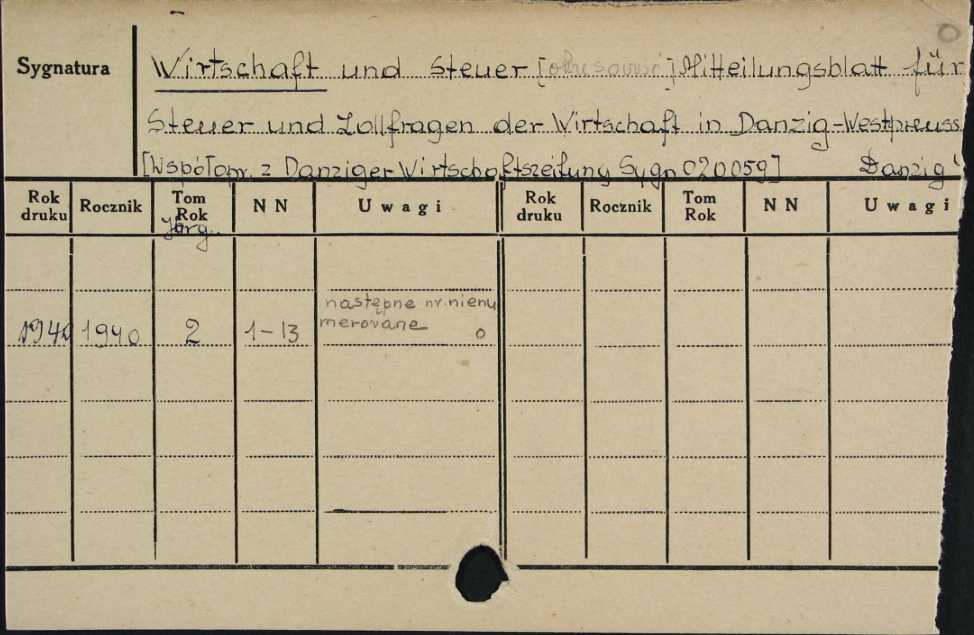 Sygnatura
Wirtschaft und Steuer [ ] Mitteilungsblatt für
Steuer und Zollfragen der Wirtschaft in Danzig-Westpreuss.
[Współopr. z Danziger Wirtschaftszeitung Sygn 020059] Danzig
Rok druku Rocznik Tom Rok Jhrg. NN Uwagi Rok druku Rocznik Tom Rok NN Uwagi
następne nr. nienu
1940 1940 2 1-13 merowane o